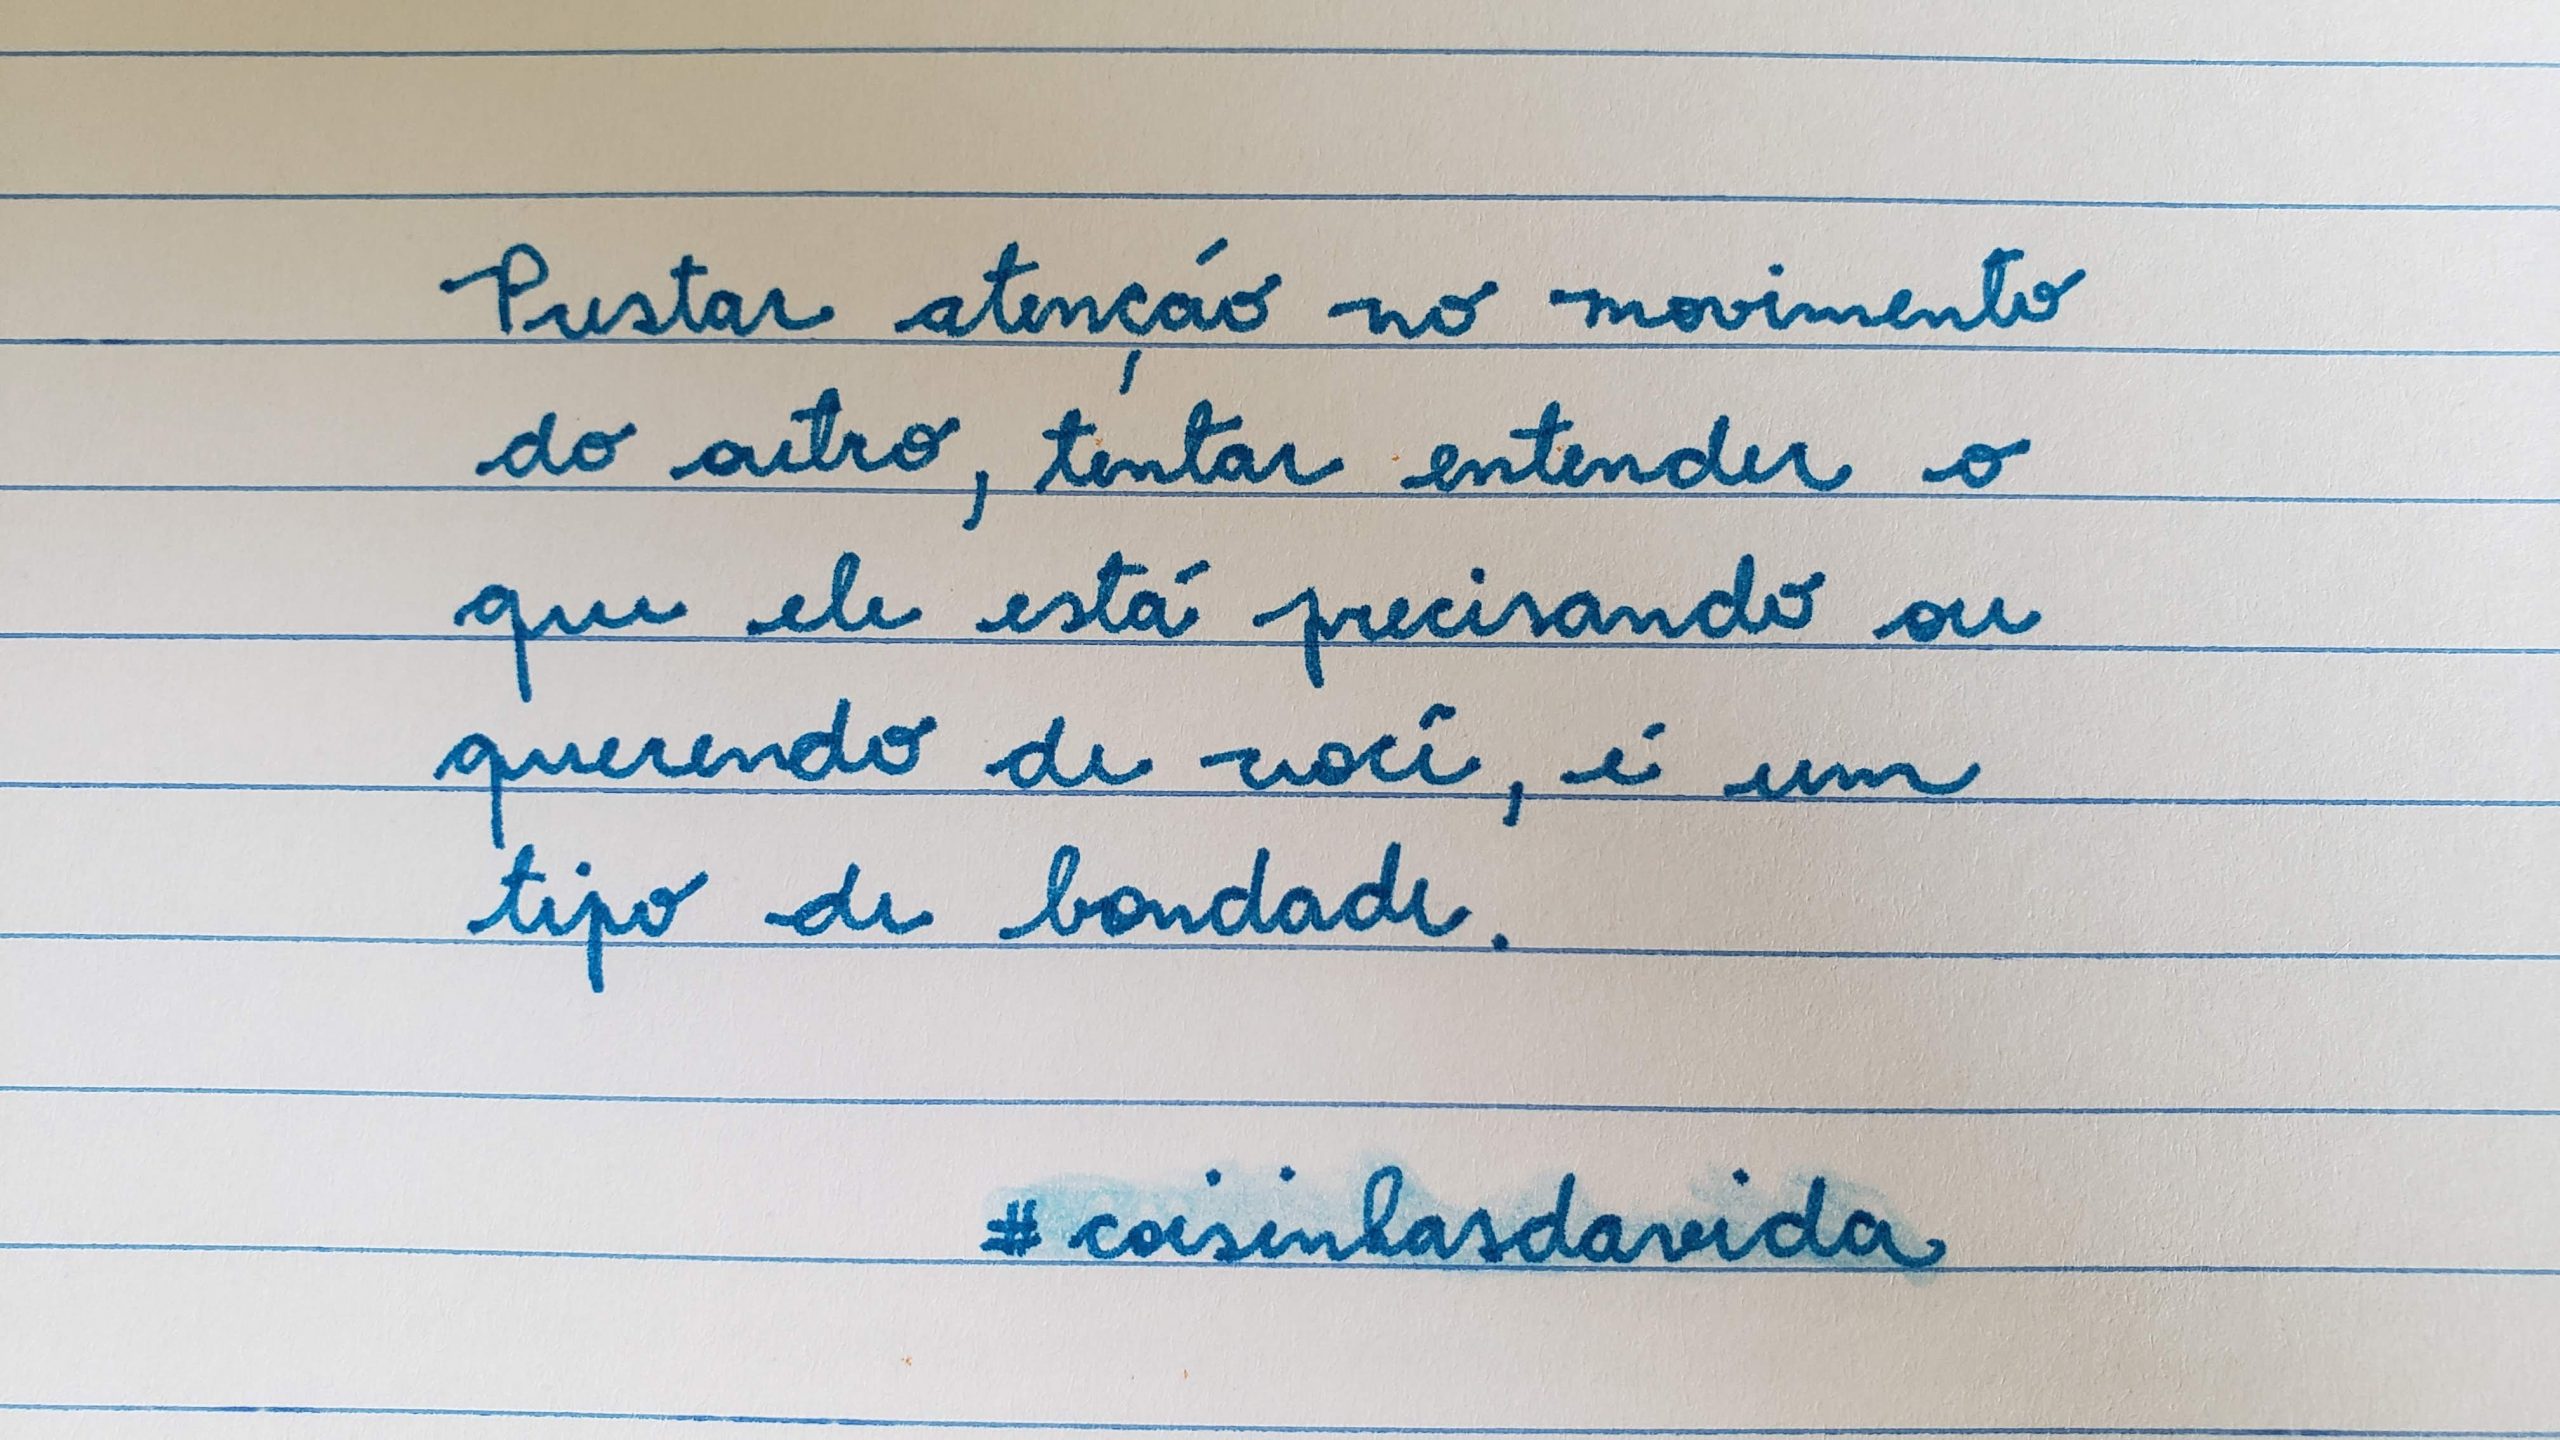 Prestar atenção no movimento
do outro, tentar entender o
que ele está precisando ou
querendo de você, é um
tipo de bondade.
#coisinhasdavida